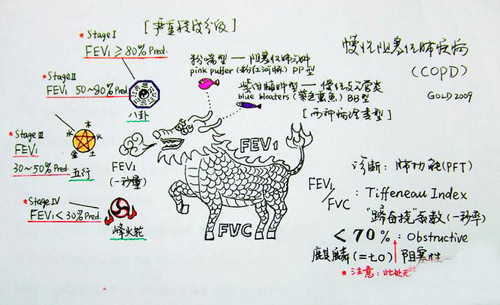 [严重程度分级]
慢性阻塞性肺疾病
(COPD)
GOLD 2009
* Stage I
FEV₁ ≥ 80% Pred.
八卦
* Stage II
FEV₁ 50~80% Pred.
* Stage III
FEV₁
30~50% Pred. 五行
* Stage IV
FEV₁ < 30% Pred.
粉喘型 — 阻塞性肺气肿
pink puffer (粉红河豚) PP型
紫绀臃肿型 — 慢性支气管炎
blue bloaters BB型
[两种病理类型]
FEV₁
(一秒量)
FEV₁
FVC
诊断: 肺功能(PFT)
FEV₁/FVC : Tiffeneau Index
系数(一秒率)
<70% : Obstructive
麒麟(=七0) 阻塞性
* 注意: 此处